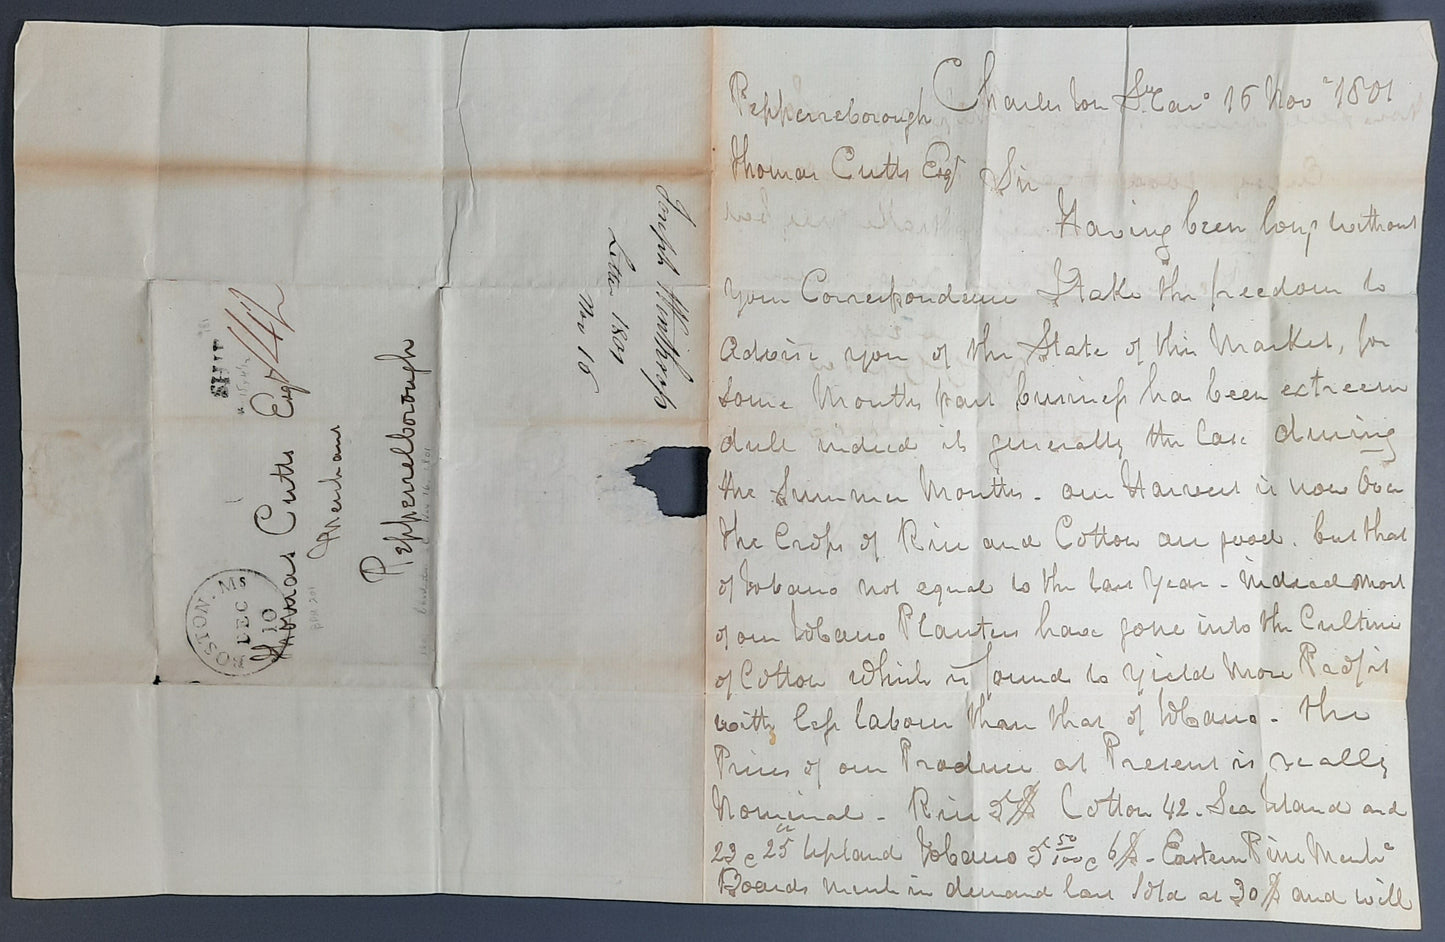 Joseph Winthrop
Letter 1801
Nov 16
SHIP
Thomas Cutts Esqr
Merchant
Pepperreborough
BOSTON. Ms
DEC
10
Pepperreborough Charleston So Caro 16 Novr 1801
Thomas Cutts Esqr Sir
Having been long without
your Correspondence I take the freedom to
advise you of the State of this Market, for
Some Months past business has been extreem
dull indeed it is generally the Case during
the Summer Months - our Harvest is now Over
the Crops of Rice and Cotton are good. but that
of Tobacco not equal to the last Year - indeed most
of our Tobacco Planters have gone into the Culture
of Cotton which is found to Yield More Profit
with less labour than that of Tobacco - the
Prices of our Produce at Present is really
Nominal - Rice 5$ Cotton 42 - Sea Island and
23 @ 25 Upland Tobacco 5 50/100 @ 6$ - Eastern Pine Merche
Boards much in demand last Sold at 30$ and will